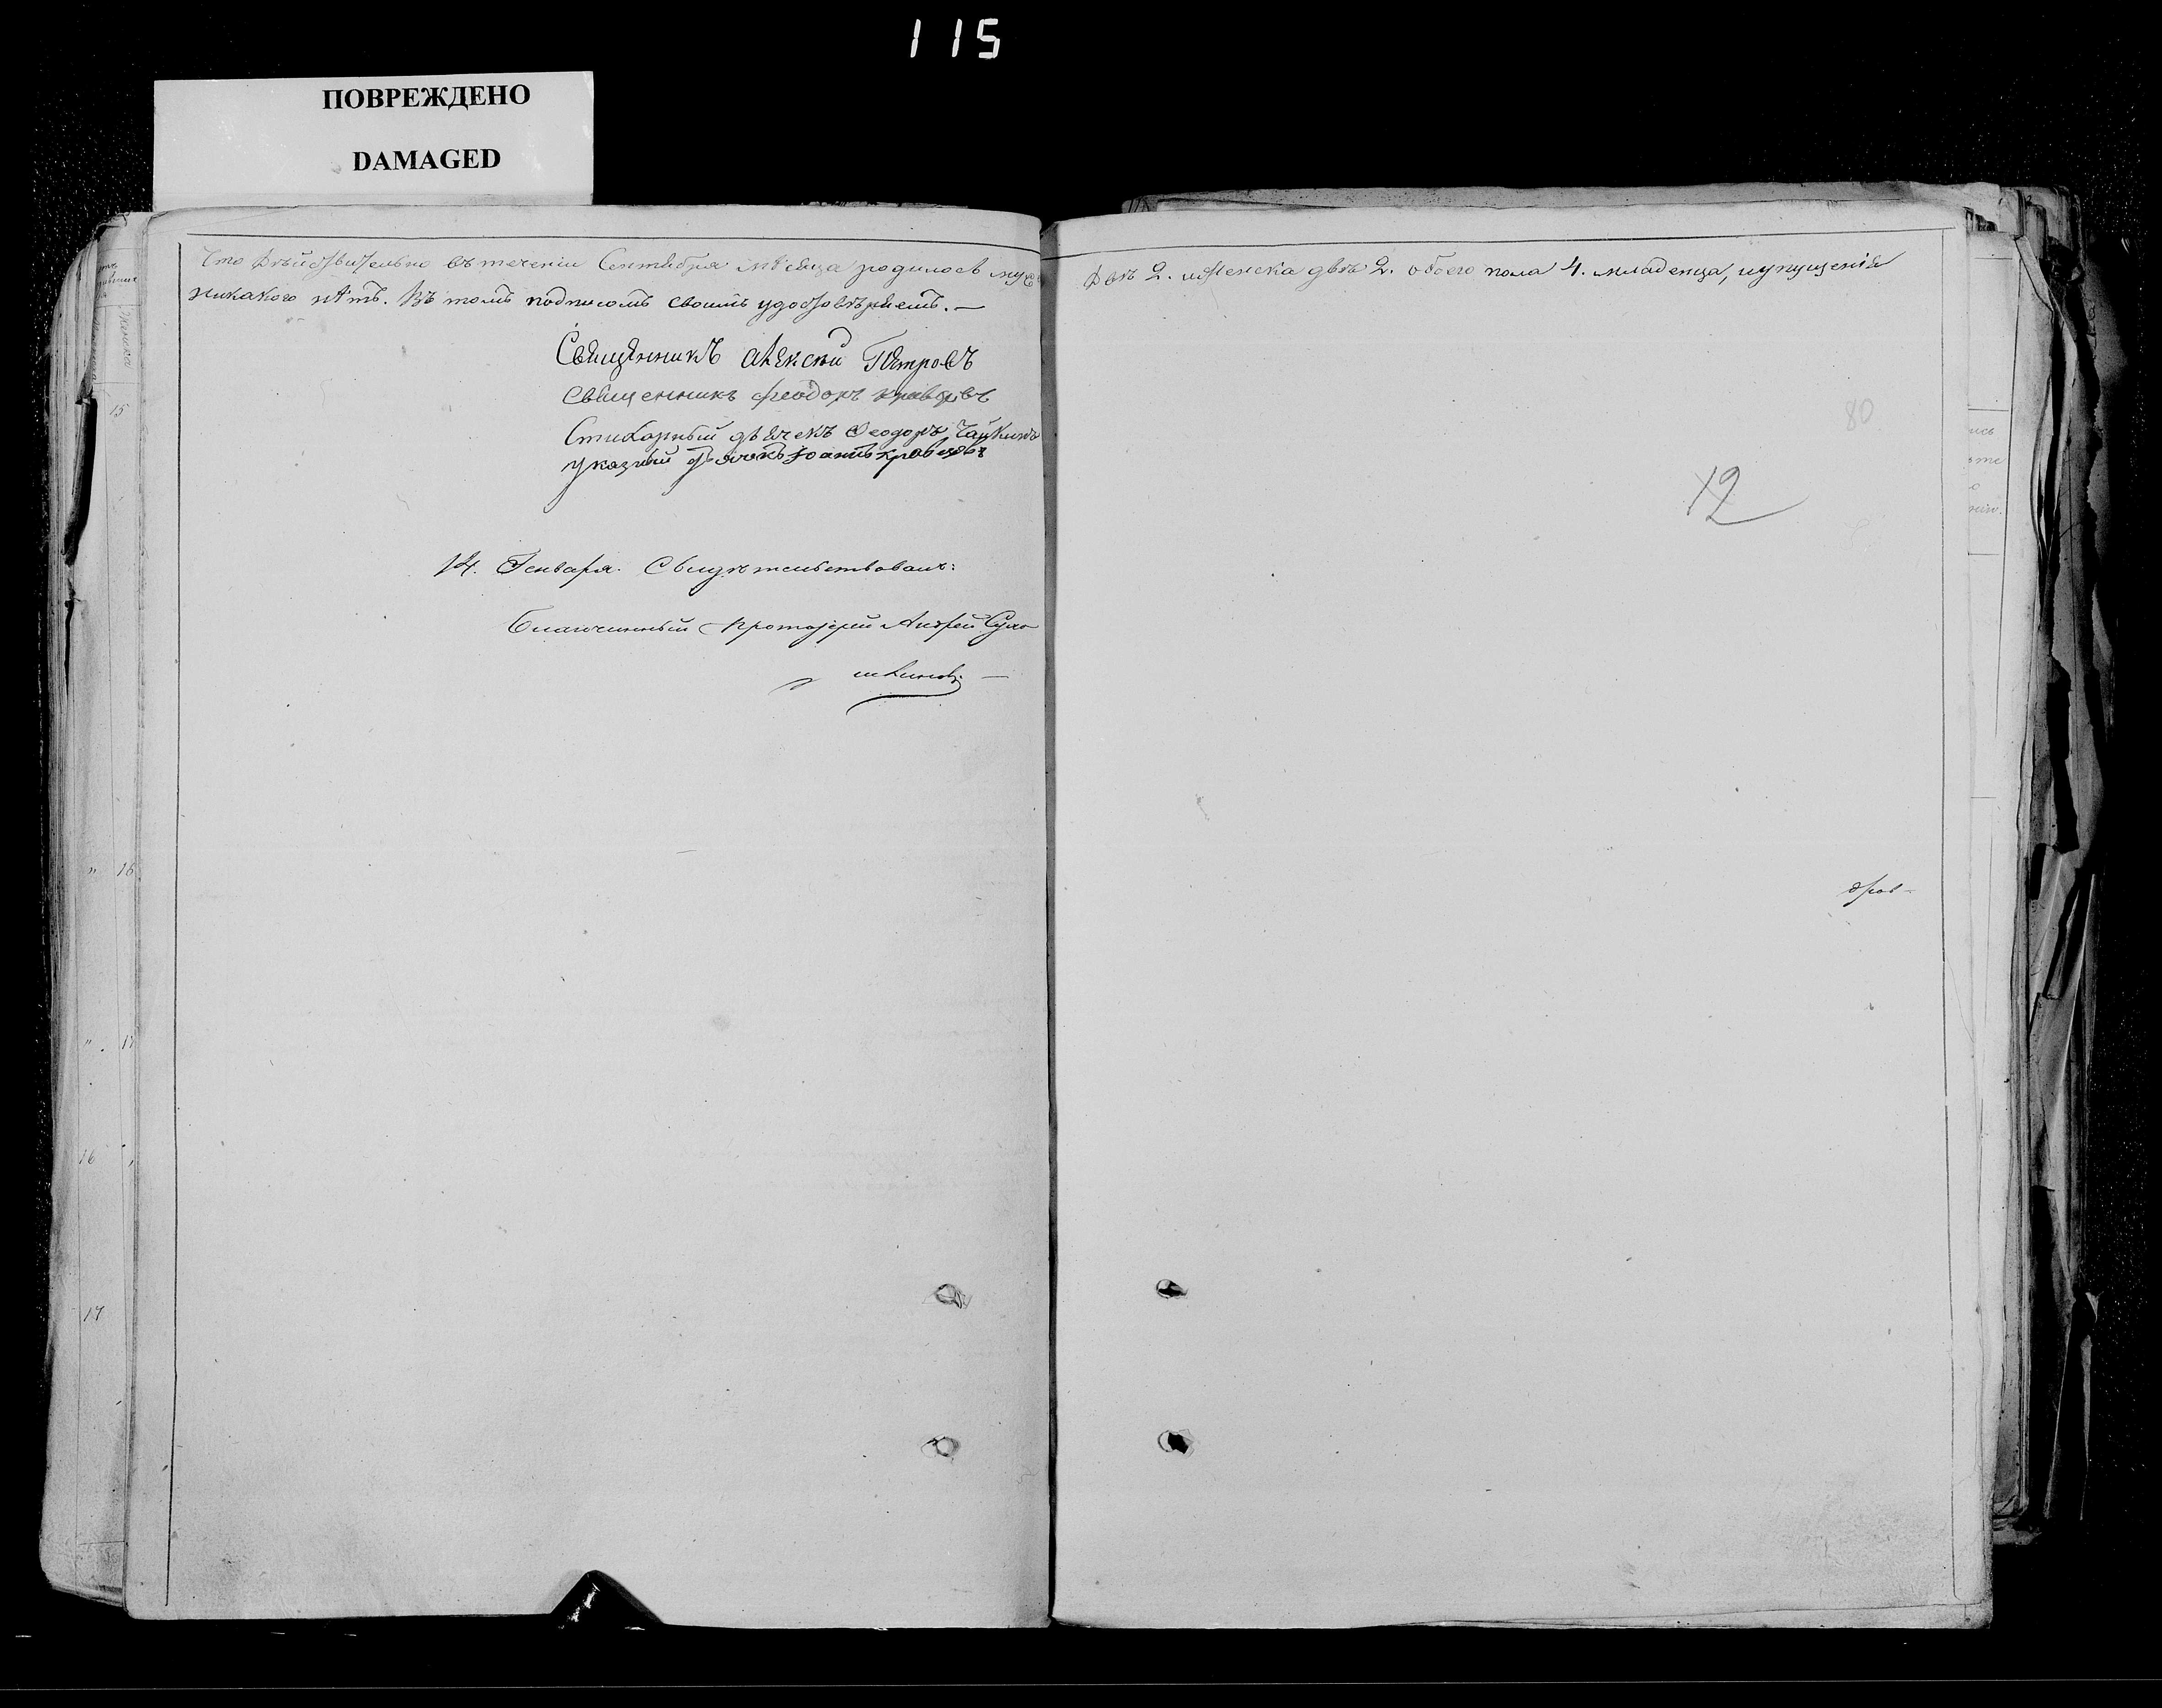 115
ПОВРЕЖДЕНО
DAMAGED
Что дѣйствительно въ теченіи Сентября мѣсяца родилось муже
никакого нѣтъ. Въ томъ подписомъ своимъ удостовѣряемъ. —
Священникъ Алексѣй Петровъ
Священникъ Феодоръ
Стихарный дьячекъ Феодоръ Чайкинъ
Указный дьячокъ Іоаннъ Кравцовъ
14. Генваря. Свидѣтельствовалъ:
Благочинный Протоіерей Андрей
ска 2. женска двѣ 2. обоего пола 4. младенца, и упущенія
80
12
15
16
17
16
17